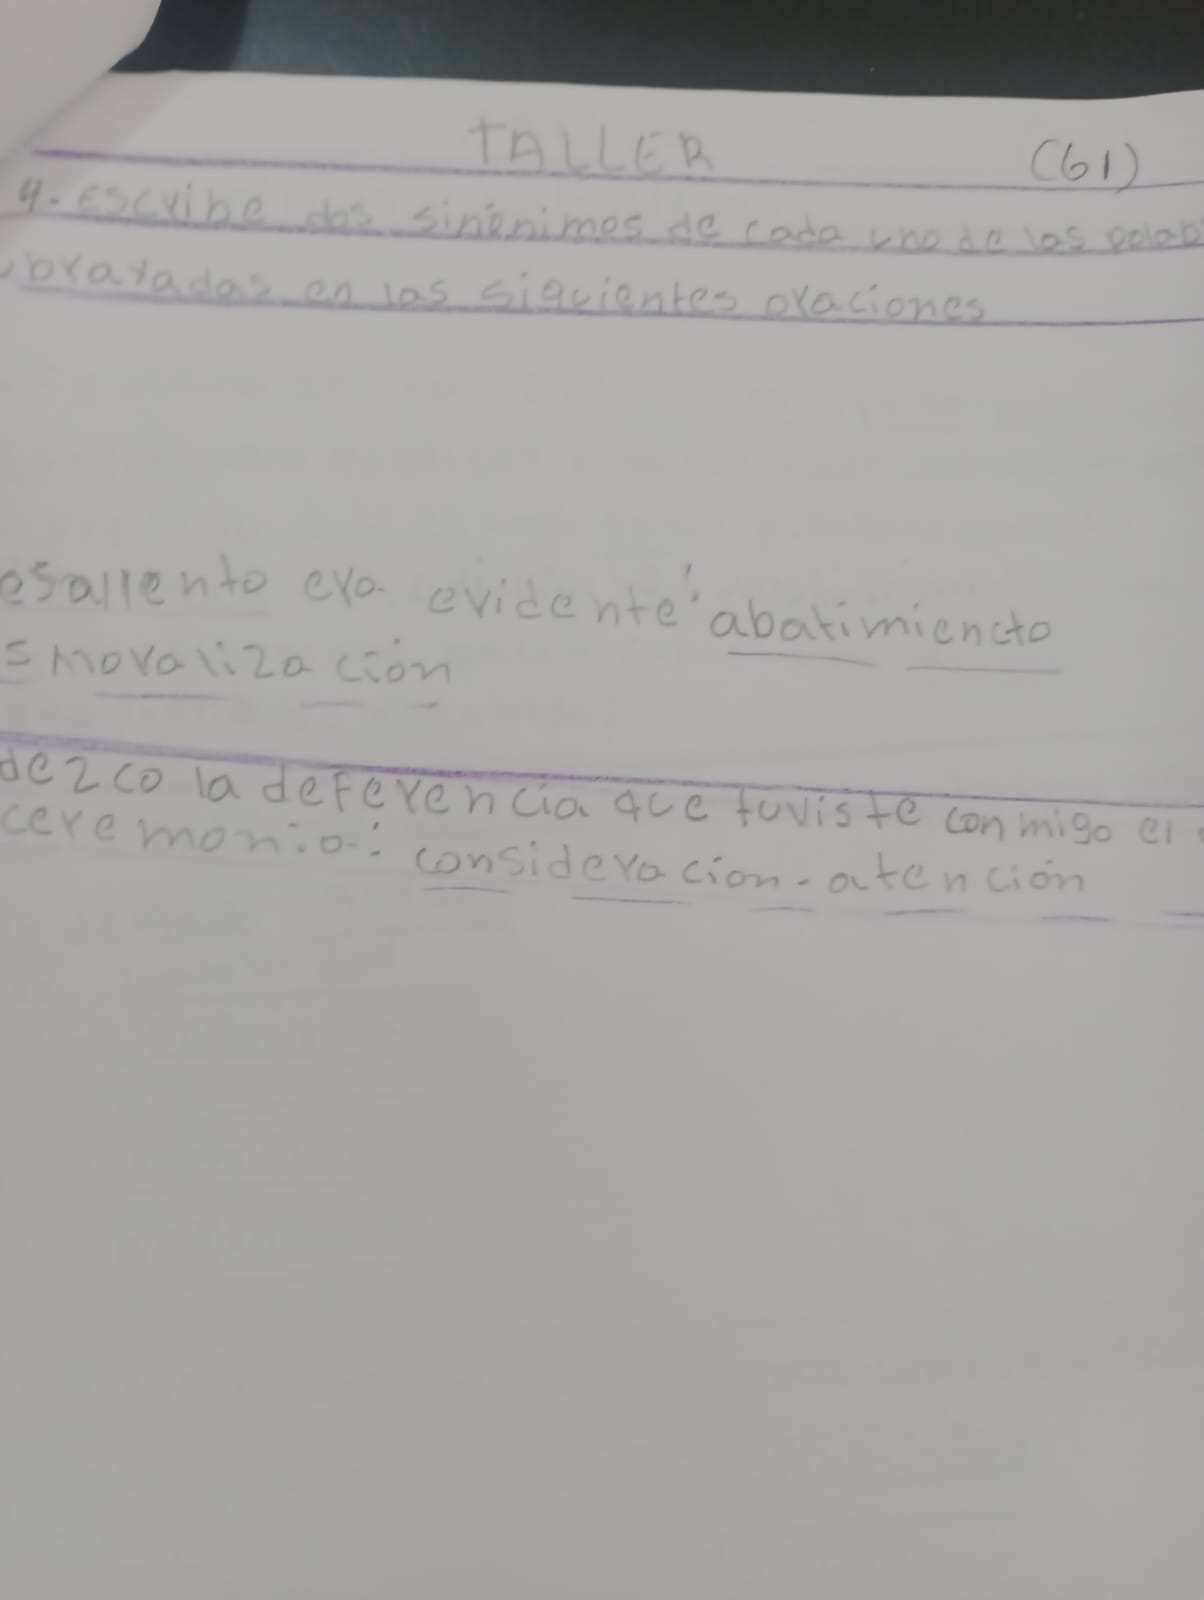 TALLER (61)
4. Escribe dos sinónimos de cada uno de las palab
brayadas en las siguientes oraciones
esaliento era evidente: abatimiencto
smoralización
dezco la deferencia que tuviste conmigo el
ceremonia: consideracion - atención